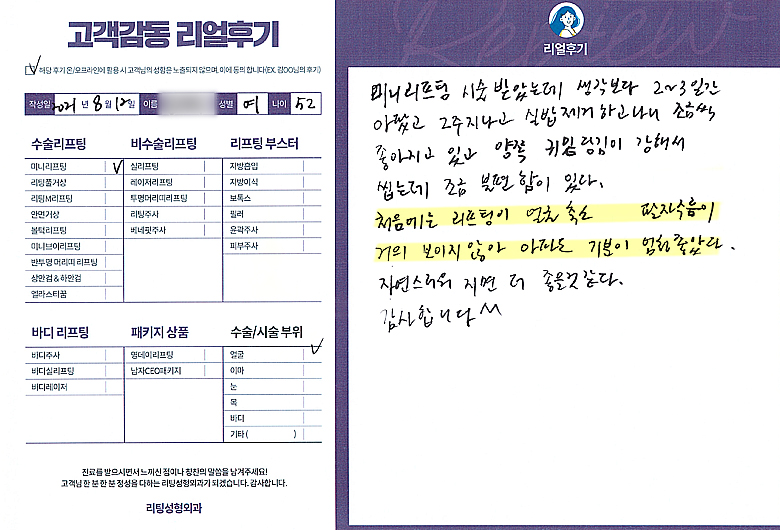 고객감동 리얼후기
해당 후기 온/오프라인에 활용 시 고객님의 성함은 노출되지 않으며, 이에 동의 합니다(EX. 김OO님의 후기)
작성일 2021 년 8 월 12 일 이름 성별 여 나이 52
수술리프팅
미니리프팅
리팅풀거상
리팅M리프팅
안면거상
볼턱리프팅
미니브이리프팅
반투명 머리띠 리프팅
상안검 & 하안검
엘라스티꿈
비수술리프팅
실리프팅
레이저리프팅
투명머리띠리프팅
리팅주사
버네핏주사
리프팅 부스터
지방흡입
지방이식
보톡스
필러
윤곽주사
피부주사
바디 리프팅
바디주사
바디실리프팅
바디레이저
패키지 상품
영데이리프팅
남자CEO패키지
수술/시술 부위
얼굴
이마
눈
목
바디
기타 ( )
진료를 받으시면서 느끼신 점이나 칭찬의 말씀을 남겨주세요!
고객님 한 분 한 분 정성을 다하는 리팅성형외과가 되겠습니다. 감사합니다.
리팅성형외과
Review
리얼후기
미니리프팅 시술 받았는데 생각보다 2~3일간
아팠고 2주지나고 실밥제거하고나니 조금씩
좋아지고 있고 양쪽 귀밑 당김이 강해서
씹는데 조금 불편함이 있다.
처음에는 리프팅이 얼굴축소 팔자주름이
거의 보이지 않아 아파도 기분이 엄청좋았다.
자연스러워 지면 더 좋을것같다.
감사합니다 ^^